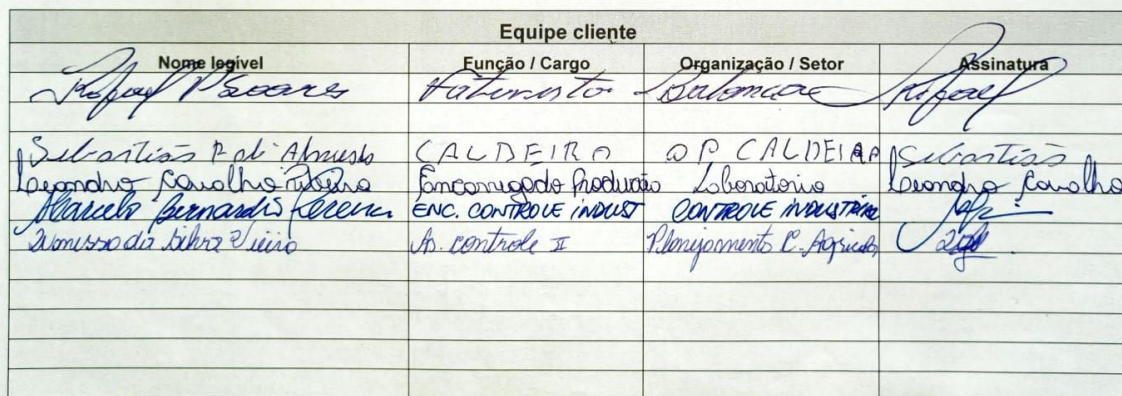 Equipe cliente
Nome legivel Função / Cargo Organização / Setor Assinatura
Rafael Soares Balança Rafael
Sebastião P. de Almeida CALDEIRA OP CALDEIRA Sebastião
Leandro Carvalho Ribeiro Encarregado Produção Laboratorio Leandro Carvalho
Marcelo Bernardis Pereira ENC. CONTROLE INDUST CONTROLE INDUSTRIAL
da Silva Vieira As. controle II Planejamento C. Agricola